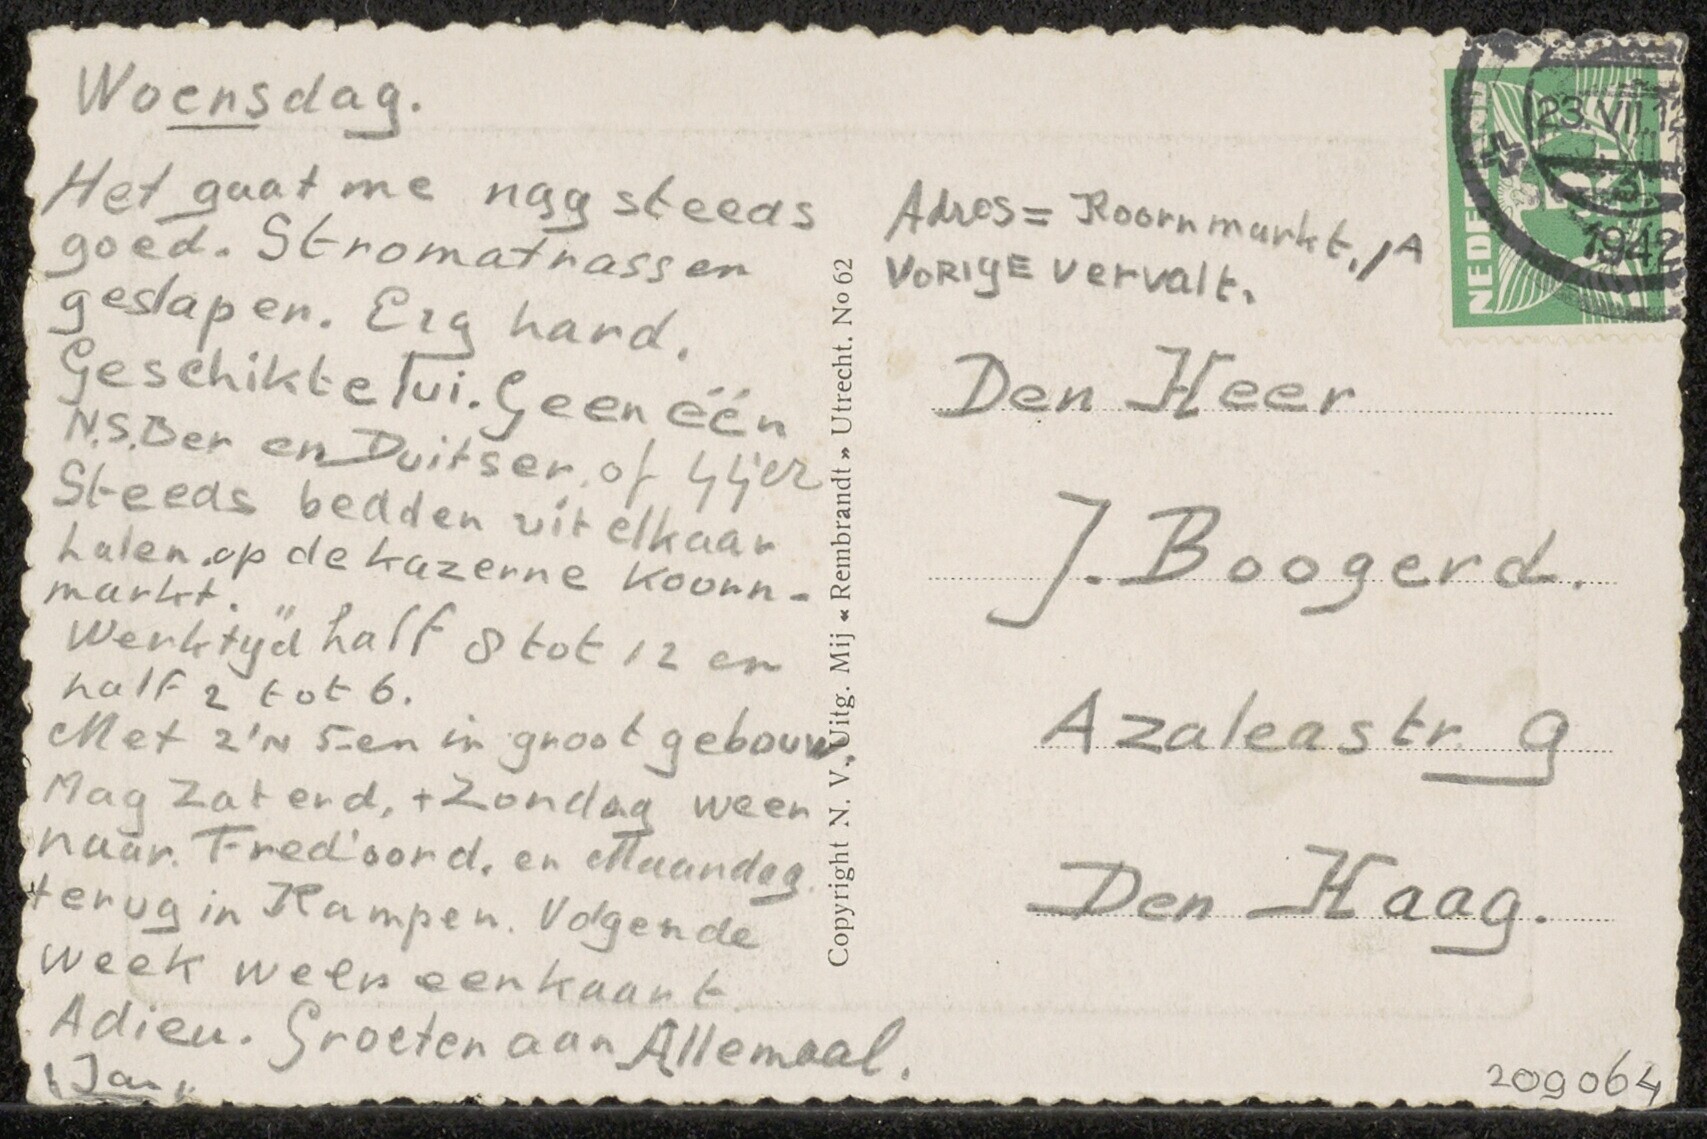 Woensdag.
Het gaat me nog steeds
goed. Stromatrassen
geslapen. Erg hard.
Geschikte lui. Geen één
N.S.Ber en Duitser of
Steeds bedden uit elkaar
halen op de kazerne Koorn-
markt.
Werktijd half 8 tot 12 en
half 2 tot 6.
Met z'n 5-en in groot gebouw.
Mag Zaterd. + Zondag weer
naar Fred'oord. en Maandag
terug in Kampen. Volgende
week weer een kaart
Adieu. Groeten aan Allemaal.
Jan
Adres = Koornmarkt. 1A
VORIGE vervalt.
Den Heer
J. Boogerd.
Azaleastr 9
Den Haag.
Copyright N. V. Uitg. Mij « Rembrandt » Utrecht. No 62
NEDERLAND
23.VII.12
1942
209064